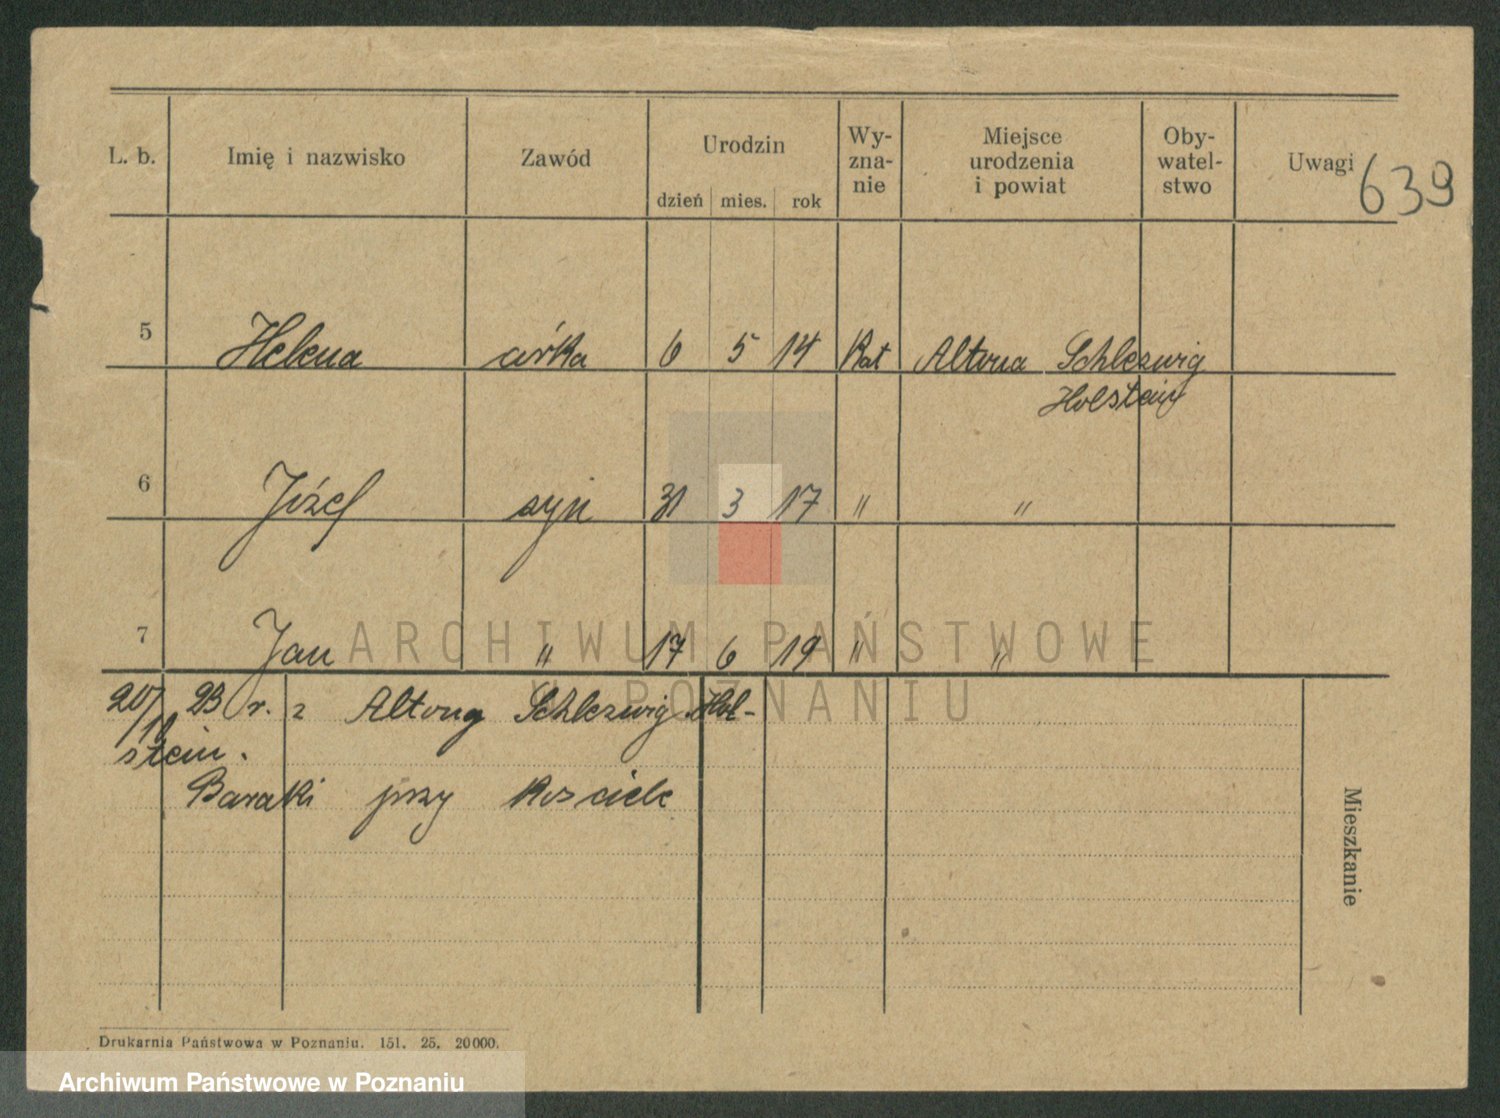 L. b. Imię i nazwisko Zawód Urodzin Wy-zna-nie Miejsce urodzenia i powiat Oby-watel-stwo Uwagi 639
dzień mies. rok
5 Helena córka 6 5 14 Kat Altona Schlezwig
Holstein
6 Józef syn 31 3 17 " "
7 Jan " 17 6 19 " "
ARCHIWUM PAŃSTWOWE
W POZNANIU
20/ 23 r. z Altony Schlezwig Hol-
stein.
Baraki przy Kosciele
Mieszkanie
Drukarnia Państwowa w Poznaniu. 151. 25. 20000.
Archiwum Państwowe w Poznaniu